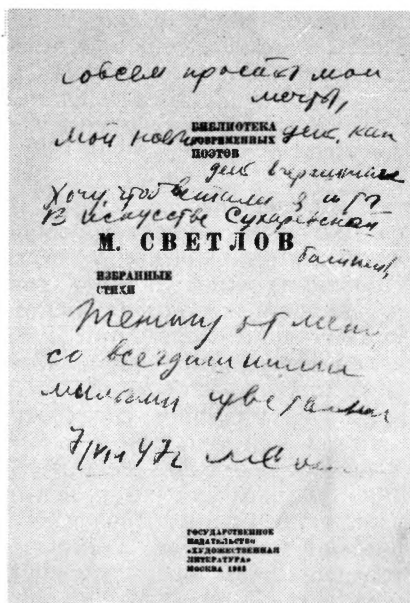 Совсем просты мои
мечты,
БИБЛИОТЕКА
СОВРЕМЕННЫХ
ПОЭТОВ
Мой день, как
день вчерашний
Хочу, чтоб и ты
В искусстве Сухаревской
башней,
М. СВЕТЛОВ
ИЗБРАННЫЕ
СТИХИ
от меня
со всегдашними
милыми цветами
7/VII 47г
ГОСУДАРСТВЕННОЕ
ИЗДАТЕЛЬСТВО
«ХУДОЖЕСТВЕННАЯ
ЛИТЕРАТУРА»
МОСКВА